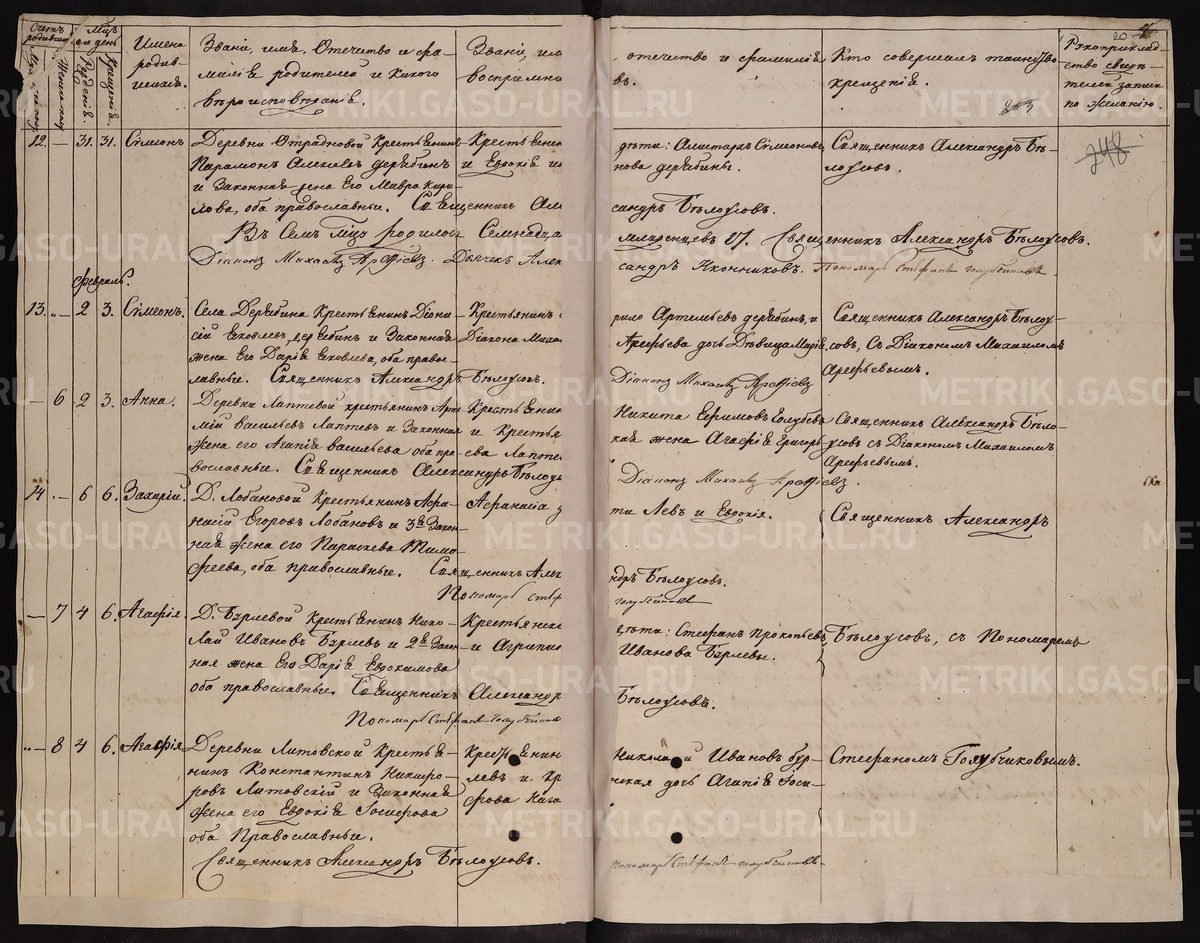 Счетъ родивших.
Мѣцъ и день
Имена родив-шихся.
Званіе, имя, Отечество и фа-
миліѧ родителей и Какого
вѣроисповѣданіѧ.
Званіе, имѧ
воспріемни
12. — 31. 31. Сѵмеонъ
Деревни Отрадновой Крестьѧнинъ
Парамонъ Алексѣевъ Дерѧбинъ
и Законнаѧ жена Его Мавра Кири-
лова, оба православные. Свѧщенникъ Але
Крестьѧнин
и Евдокіѧ
Въ Семъ Мцѣ родилось Семнадца
Діаконъ Михаилъ Арефіевъ. Дьячекъ Алек
Февраль.
13. „ — 2 3. Сѵмеонъ.
Села Дерѧбина Крестьѧнинъ Діони-
сій Ѧковлевъ Дерѧбинъ и Законнаѧ
жена Его Даріѧ Ѧковлева, оба право-
славные. Свѧщенникъ Александръ
Крестьѧнинъ
Діакона Миха
— 6 2 3. Анна.
Деревни Лаптевой крестьѧнинъ Арте
мій Васильевъ Лаптевъ и Законнаѧ
жена его Агапіѧ Васильева оба пра-
вославные. Свѧщенникъ Александръ Бѣлоу
Крестьѧнин
и Крестьѧ
ева Лапте
14 „ — 6 6. Захарій.
Д. Лобановой Крестьѧнинъ Афа-
насій Егоровъ Лобановъ и 3ѧ Закон-
наѧ жена его Параскева Тимо-
феева, оба православные. Свѧщенникъ Алек
Афанасіѧ
Пономарь Стеф
— 7 4 6. Агафіѧ.
Д. Бурлевой Крестьѧнинъ Нико-
лай Ивановъ Бурлевъ и 2ѧ Закон
наѧ жена Его Даріѧ Евдокимова
оба православные. Свѧщенникъ Александр
Крестьѧнск
и Агрипин
Пономарь Стефанъ Голубчиков
„ — 8 4 6. Агафіѧ
Деревни Литовской Крестьѧ-
нинъ Константинъ Никифо-
ровъ Литовскій и Законнаѧ
жена его Евдокіѧ Іосифова
оба Православные.
Свѧщенникъ Александръ Бѣлоусовъ.
Крестьѧнин
левъ и Кр
фрова
20
, отечество и фамиліѧ
въ.
Кто совершалъ таинство
крещеніѧ.
263
Рукоприклад-
ство свидѣ-
телей записи
по желанію.
дѣти: Сѵмеоновъ
нова Дерѧбины.
Свѧщенникъ Александръ Бѣ-
лоусовъ.
248
сандръ Бѣлоусовъ.
младенцевъ 17. Свѧщенникъ Александръ Бѣлоусовъ.
сандръ Иконниковъ. Пономарь Стефанъ Голубчиковъ
рило Артемьевъ Дерѧбинъ, и
Арефьева дочь дѣвица Маріѧ
Бѣлоусовъ.
Діаконъ Михаилъ Арефіевъ
Свѧщенникъ Александръ Бѣлоу-
совъ, Съ Діакономъ Михаиломъ
Арефьевымъ.
Никита Ефимовъ Голубевъ
каѧ жена Агафіѧ Григорь
Свѧщенникъ Александръ Бѣло-
усовъ съ Діакономъ Михаиломъ
Арефьевымъ.
Діаконъ Михаилъ Арефіевъ.
ти Левъ и Евдокіѧ.
Свѧщенникъ Александръ
ндръ Бѣлоусовъ.
Голубчиковъ
дѣти: Стефанъ Прокопьевъ
Иванова Бурлевы.
Бѣлоусовъ, съ Пономаремъ
Бѣлоусовъ.
Николай Ивановъ бур-
нская дочь Агапіѧ Іоси-
Стефаномъ Голубчиковымъ.
Пономарь Стефанъ Голубчиковъ
METRIKI.GASO-URAL.RU